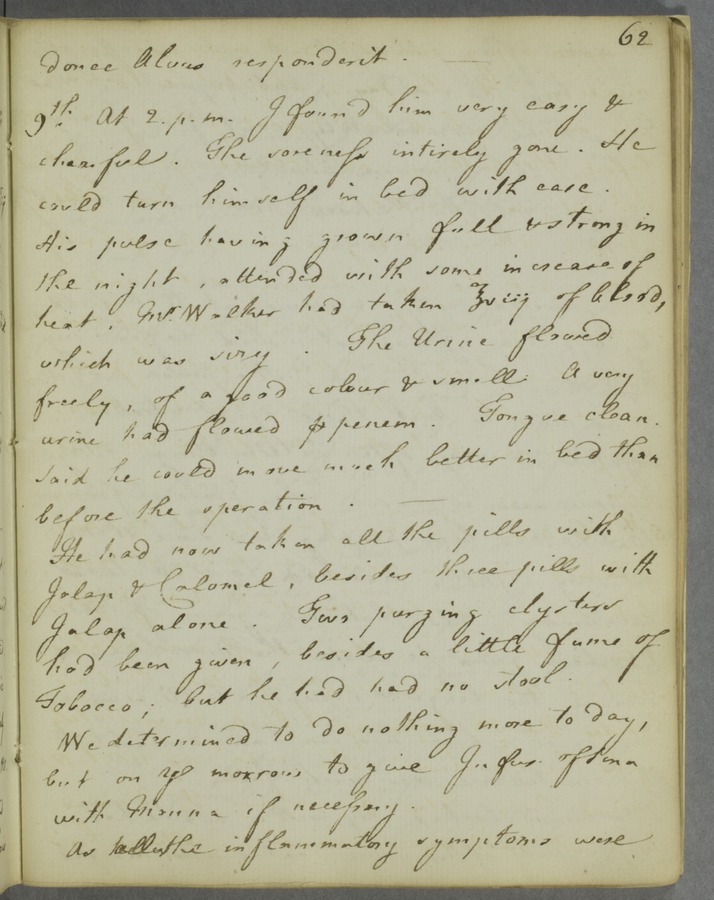 62
donec Alvus responderit.
9th. At 2. p.m. I found him very easy &
chearful. The soreness intirely gone. He
could turn himself in bed with ease.
His pulse having grown full & strong in
the night, attended with some increase of
heat, Mr. Walker had taken ℥viij of blood,
which was sizy. The Urine flowed
freely, of a good colour & smell. A very
urine had flowed p penem. Tongue clean.
Said he could move much better in bed than
before the operation.
He had now taken all the pills with
Jalap & Calomel, besides three pills with
Jalap alone. Four purging clysters
had been given, besides a little fume of
Tobacco; but he had had no stool.
We determined to do nothing more to day,
but on ye morrow to give Infus. of Sena
with Manna if necessary.
As the inflammatory symptoms were